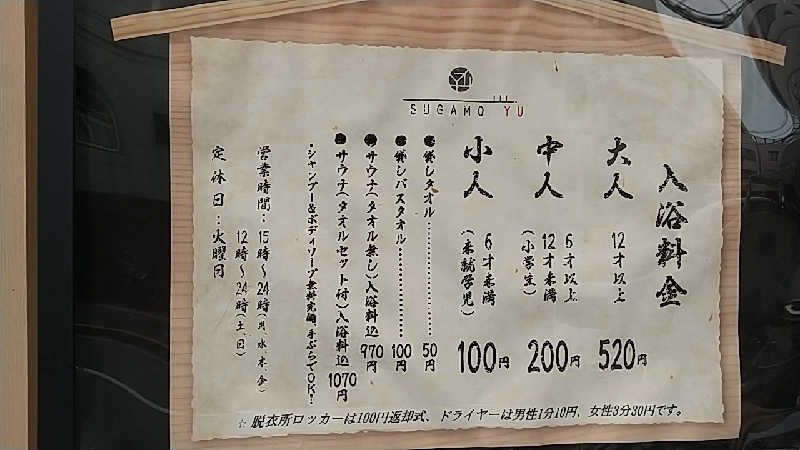 SUGAMO YU
入浴料金
大人 12才以上 520円
中人 6才以上 12才未満 (小学生) 200円
小人 6才未満 (未就学児) 100円
●貸しタオル……………… 50円
●貸しバスタオル……………… 100円
●サウナ(タオル無し)入浴料込 970円
●サウナ(タオルセット付)入浴料込 1070円
・シャンプー&ボディソープ無料完備、手ぶらでOK!・
営業時間:15時~24時(月、水、木、金)
12時~24時(土、日)
定休日:火曜日
☆ 脱衣所ロッカーは100円返却式、ドライヤーは男性1分10円、女性3分30円です。